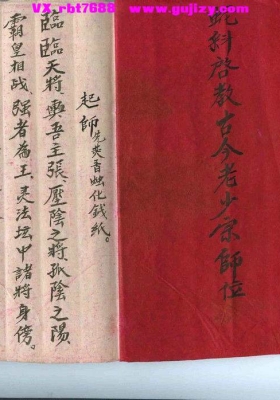 VX_rbt7688 www.gujizy.com
斜啓教古今老少宗師位
起師先焚香燭化錢紙。
臨臨天將與吾主張、壓陰之將孤陰之陽、
霸皇相战、强者為王、灵法坛中諸將身傍。